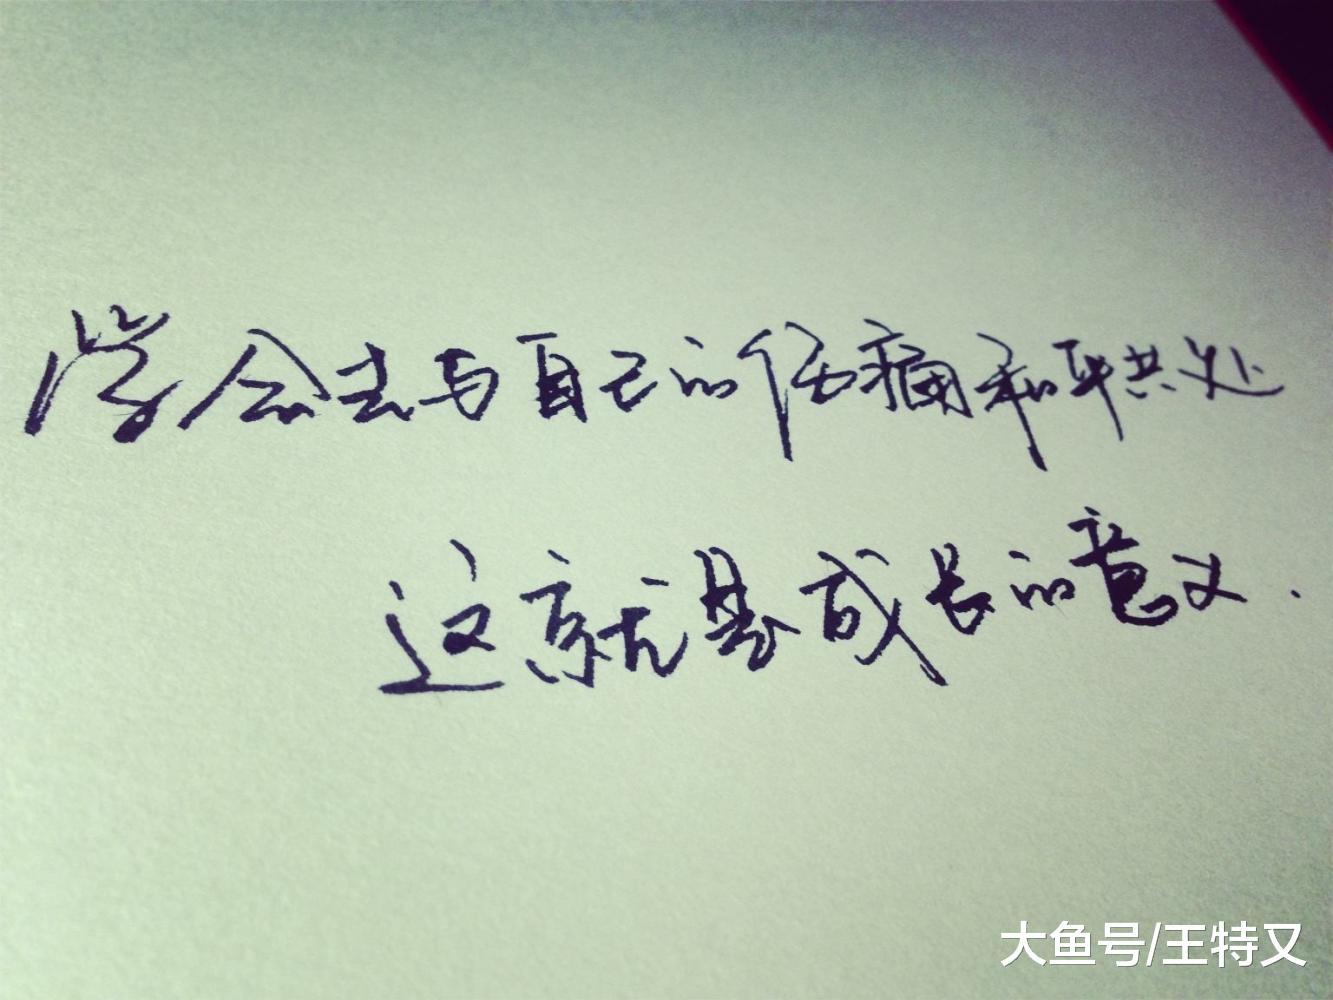 学会去与自己的伤痛和平共处
这就是成长的意义.
大鱼号/王特又